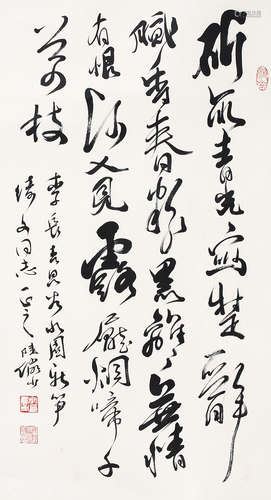 斫取青光寫楚辭
膩香春粉黑離〻無情
有恨何人見露壓烟啼千
萬枝
李長吉昌谷北園新笋
文同志正之陸儼少